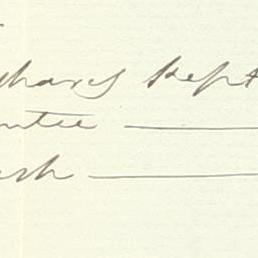 shares Kept
ntee
sh